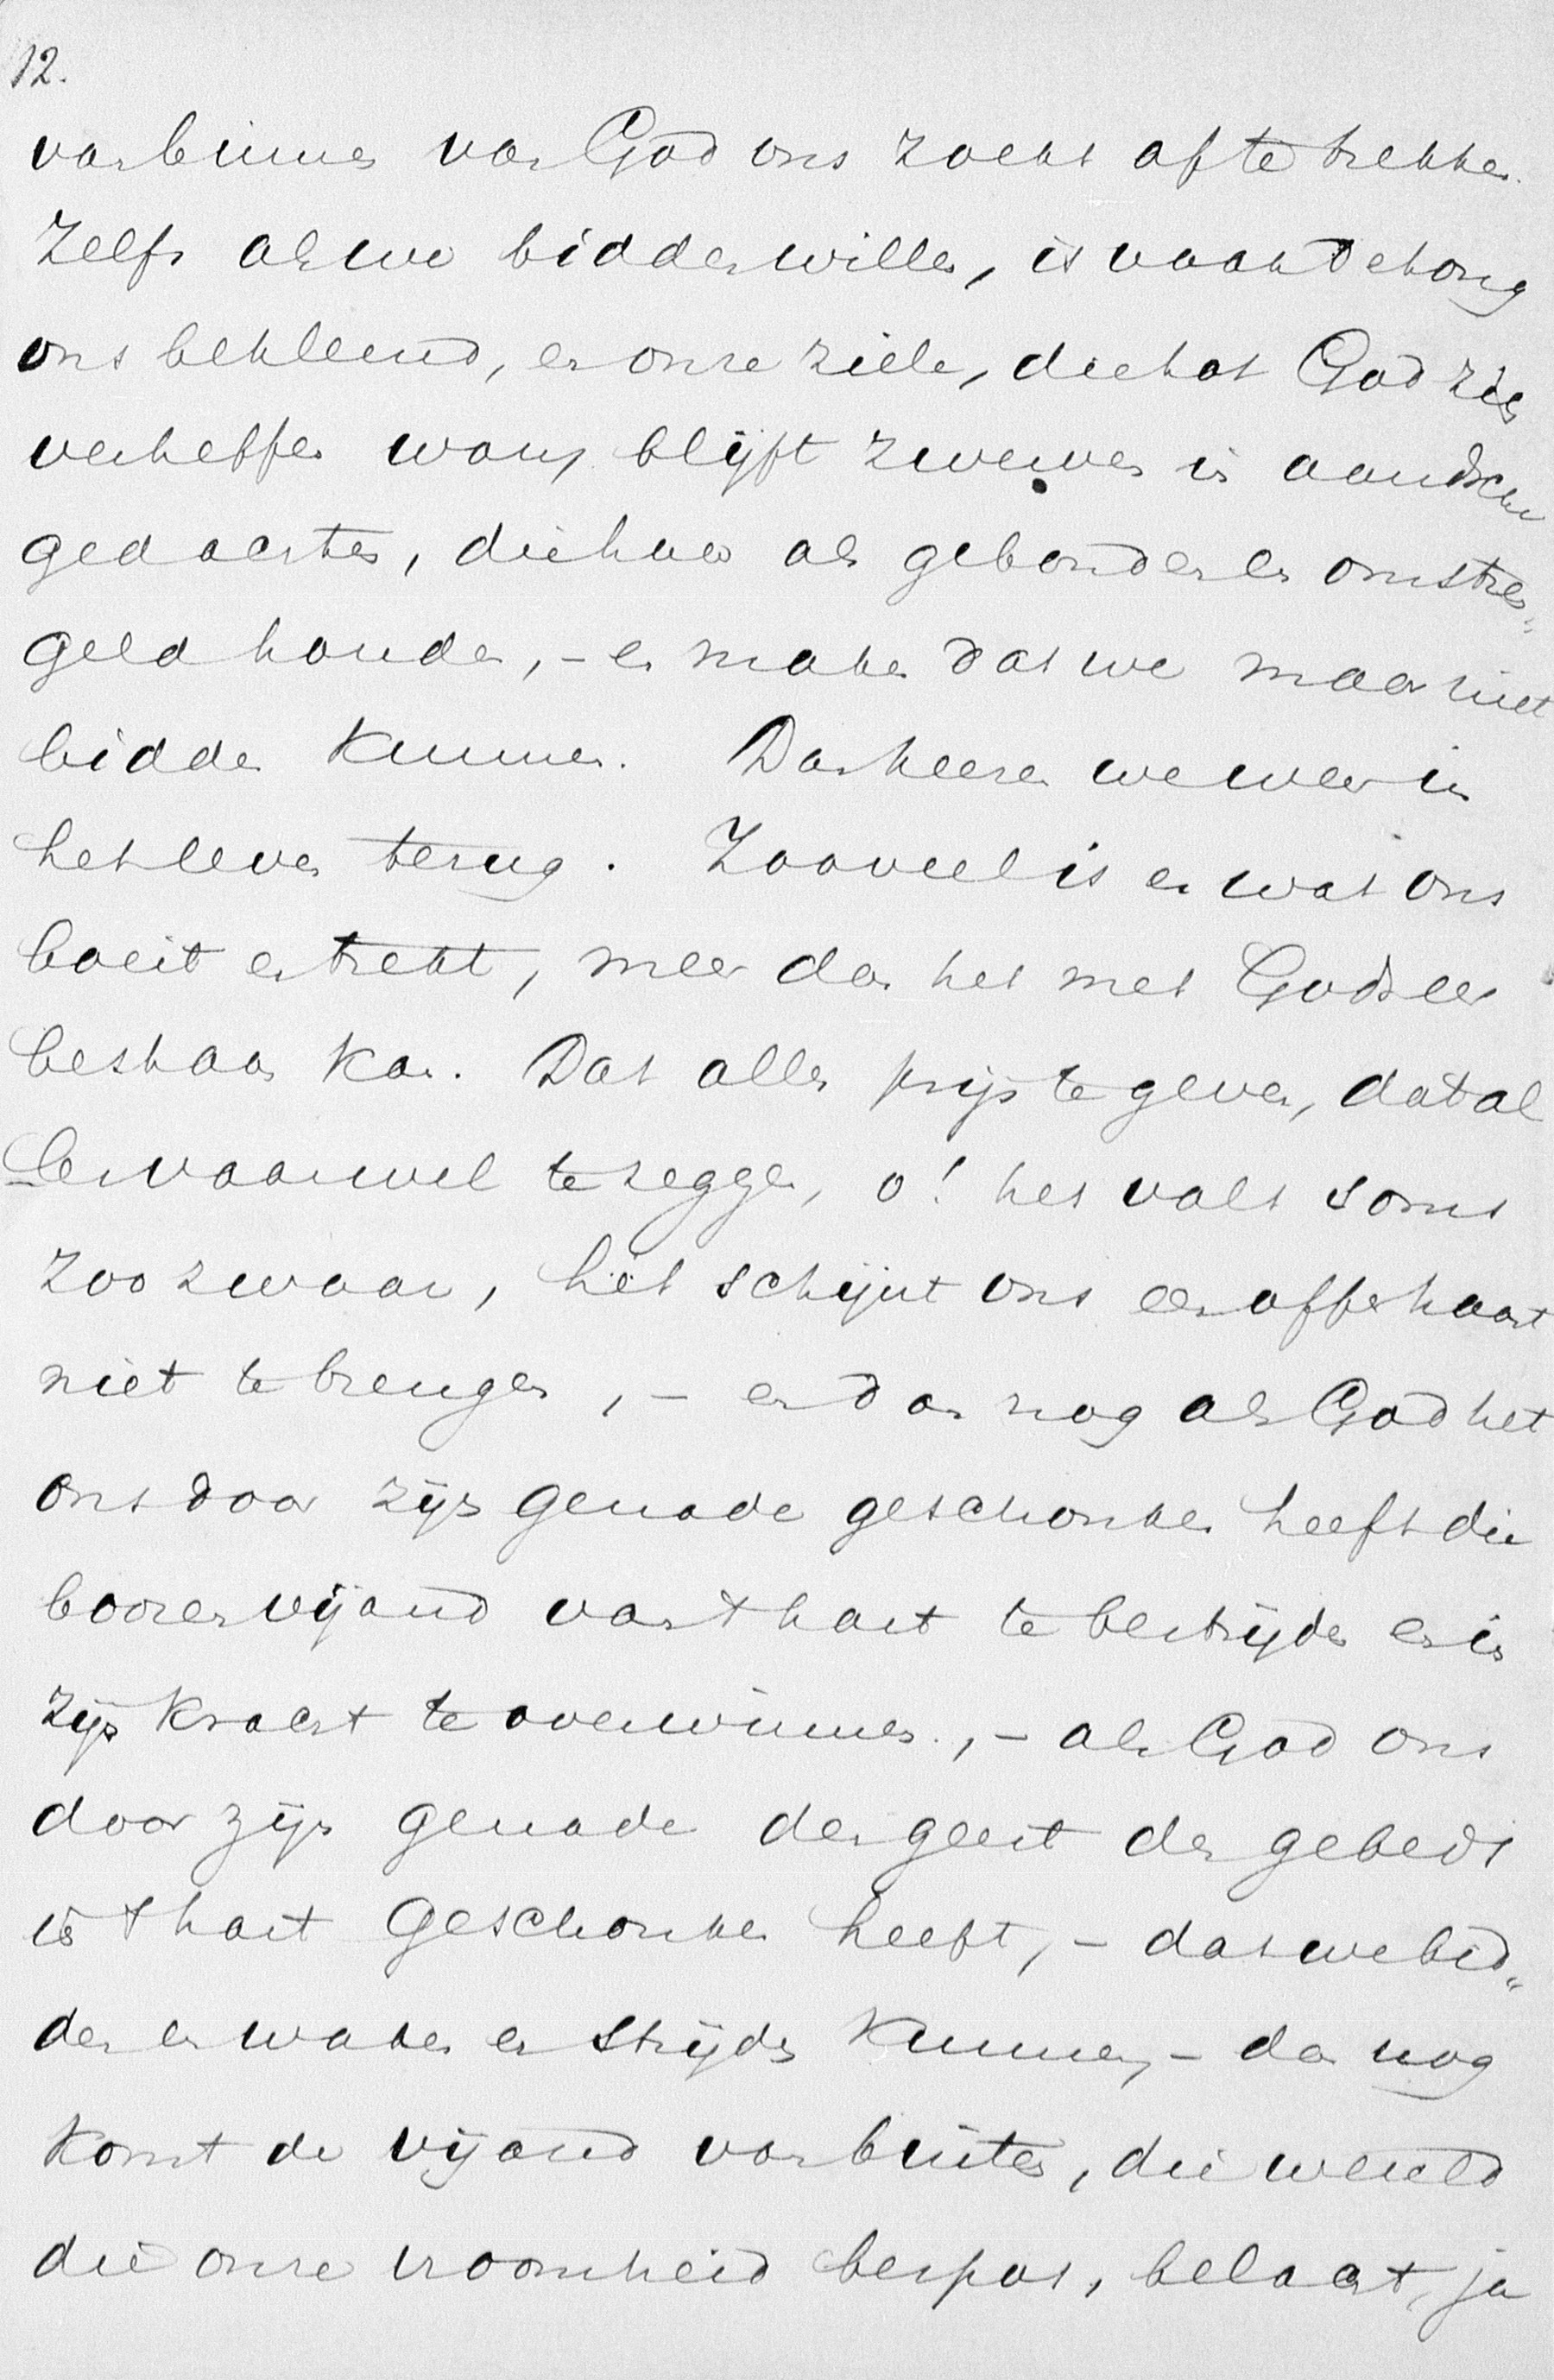 12.
van binnen van God ons zoekt af te trekken.
Zelfs als we bidden willen, is vaak de tong
ons beklemd, en onze ziele, die tot God zich
verheffen wou, blijft zweven in aardsche
gedachten, die haar als gebonden en omstren„
geld houden, – en maken dat we maar niet
bidden kunnen. Dan keeren we weer in
het leven terug. Zooveel is er wat ons
boeit en trekt, meer dan het met Gods eer
bestaan kan. Dat alles prijs te geven, dat al
les vaarwel te zeggen, o! het valt soms
zoo zwaar, het schijnt ons een offer haast
niet te brengen, – en dan nog als God het
ons door zijn genade geschonken heeft die
boozen vijand van 't hart te bestrijden en in
zijn kracht te overwinnen, – als God ons
door zijn genade den geest des gebeds
in 't hart geschonken heeft, – dat we bid„
den en waken en strijden kunnen, – dan nog
komt de vijand van buiten, die wereld
die onze vroomheid bespot, belacht, ja